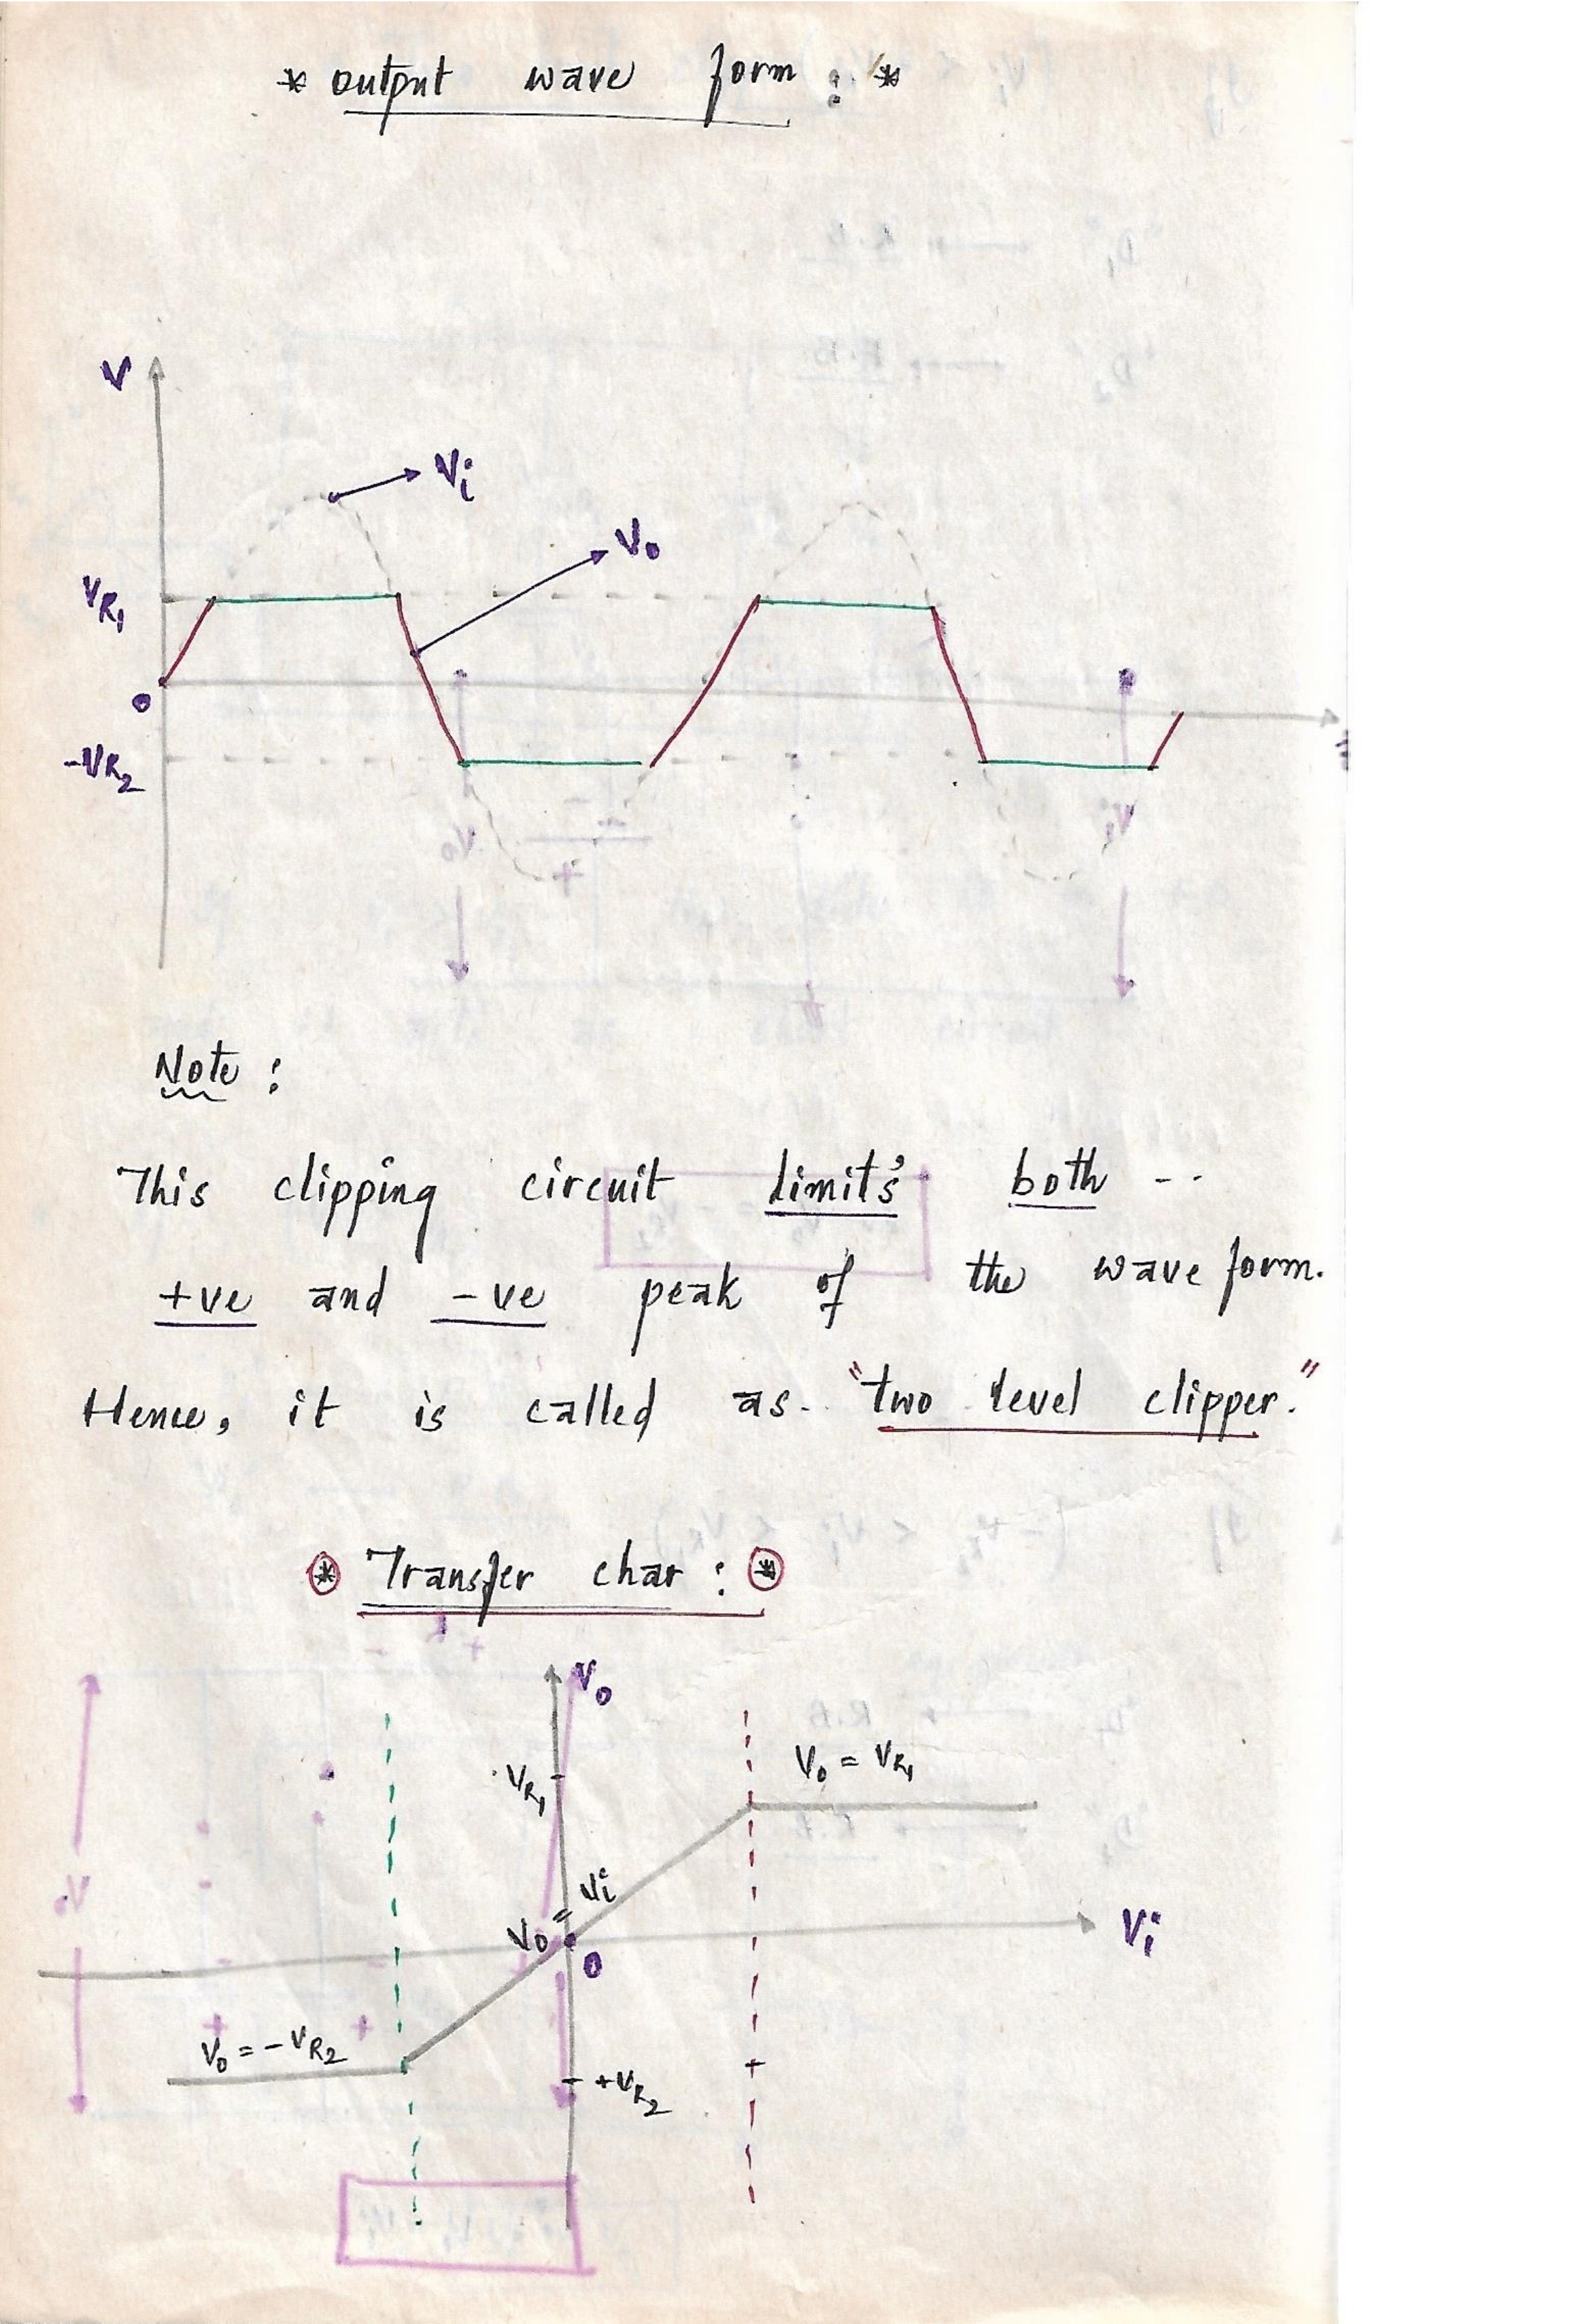 * output wave form : *
V
Vi
Vo
VR1
o
-VR2
Note :
This clipping circuit limit's both --
+ve and -ve peak of the wave form.
Hence, it is called as. "two level clipper."
* Transfer char : *
Vo
Vo = VR1
VR1
Vi
=
Vo
Vi
o
Vo = -VR2
+VR2